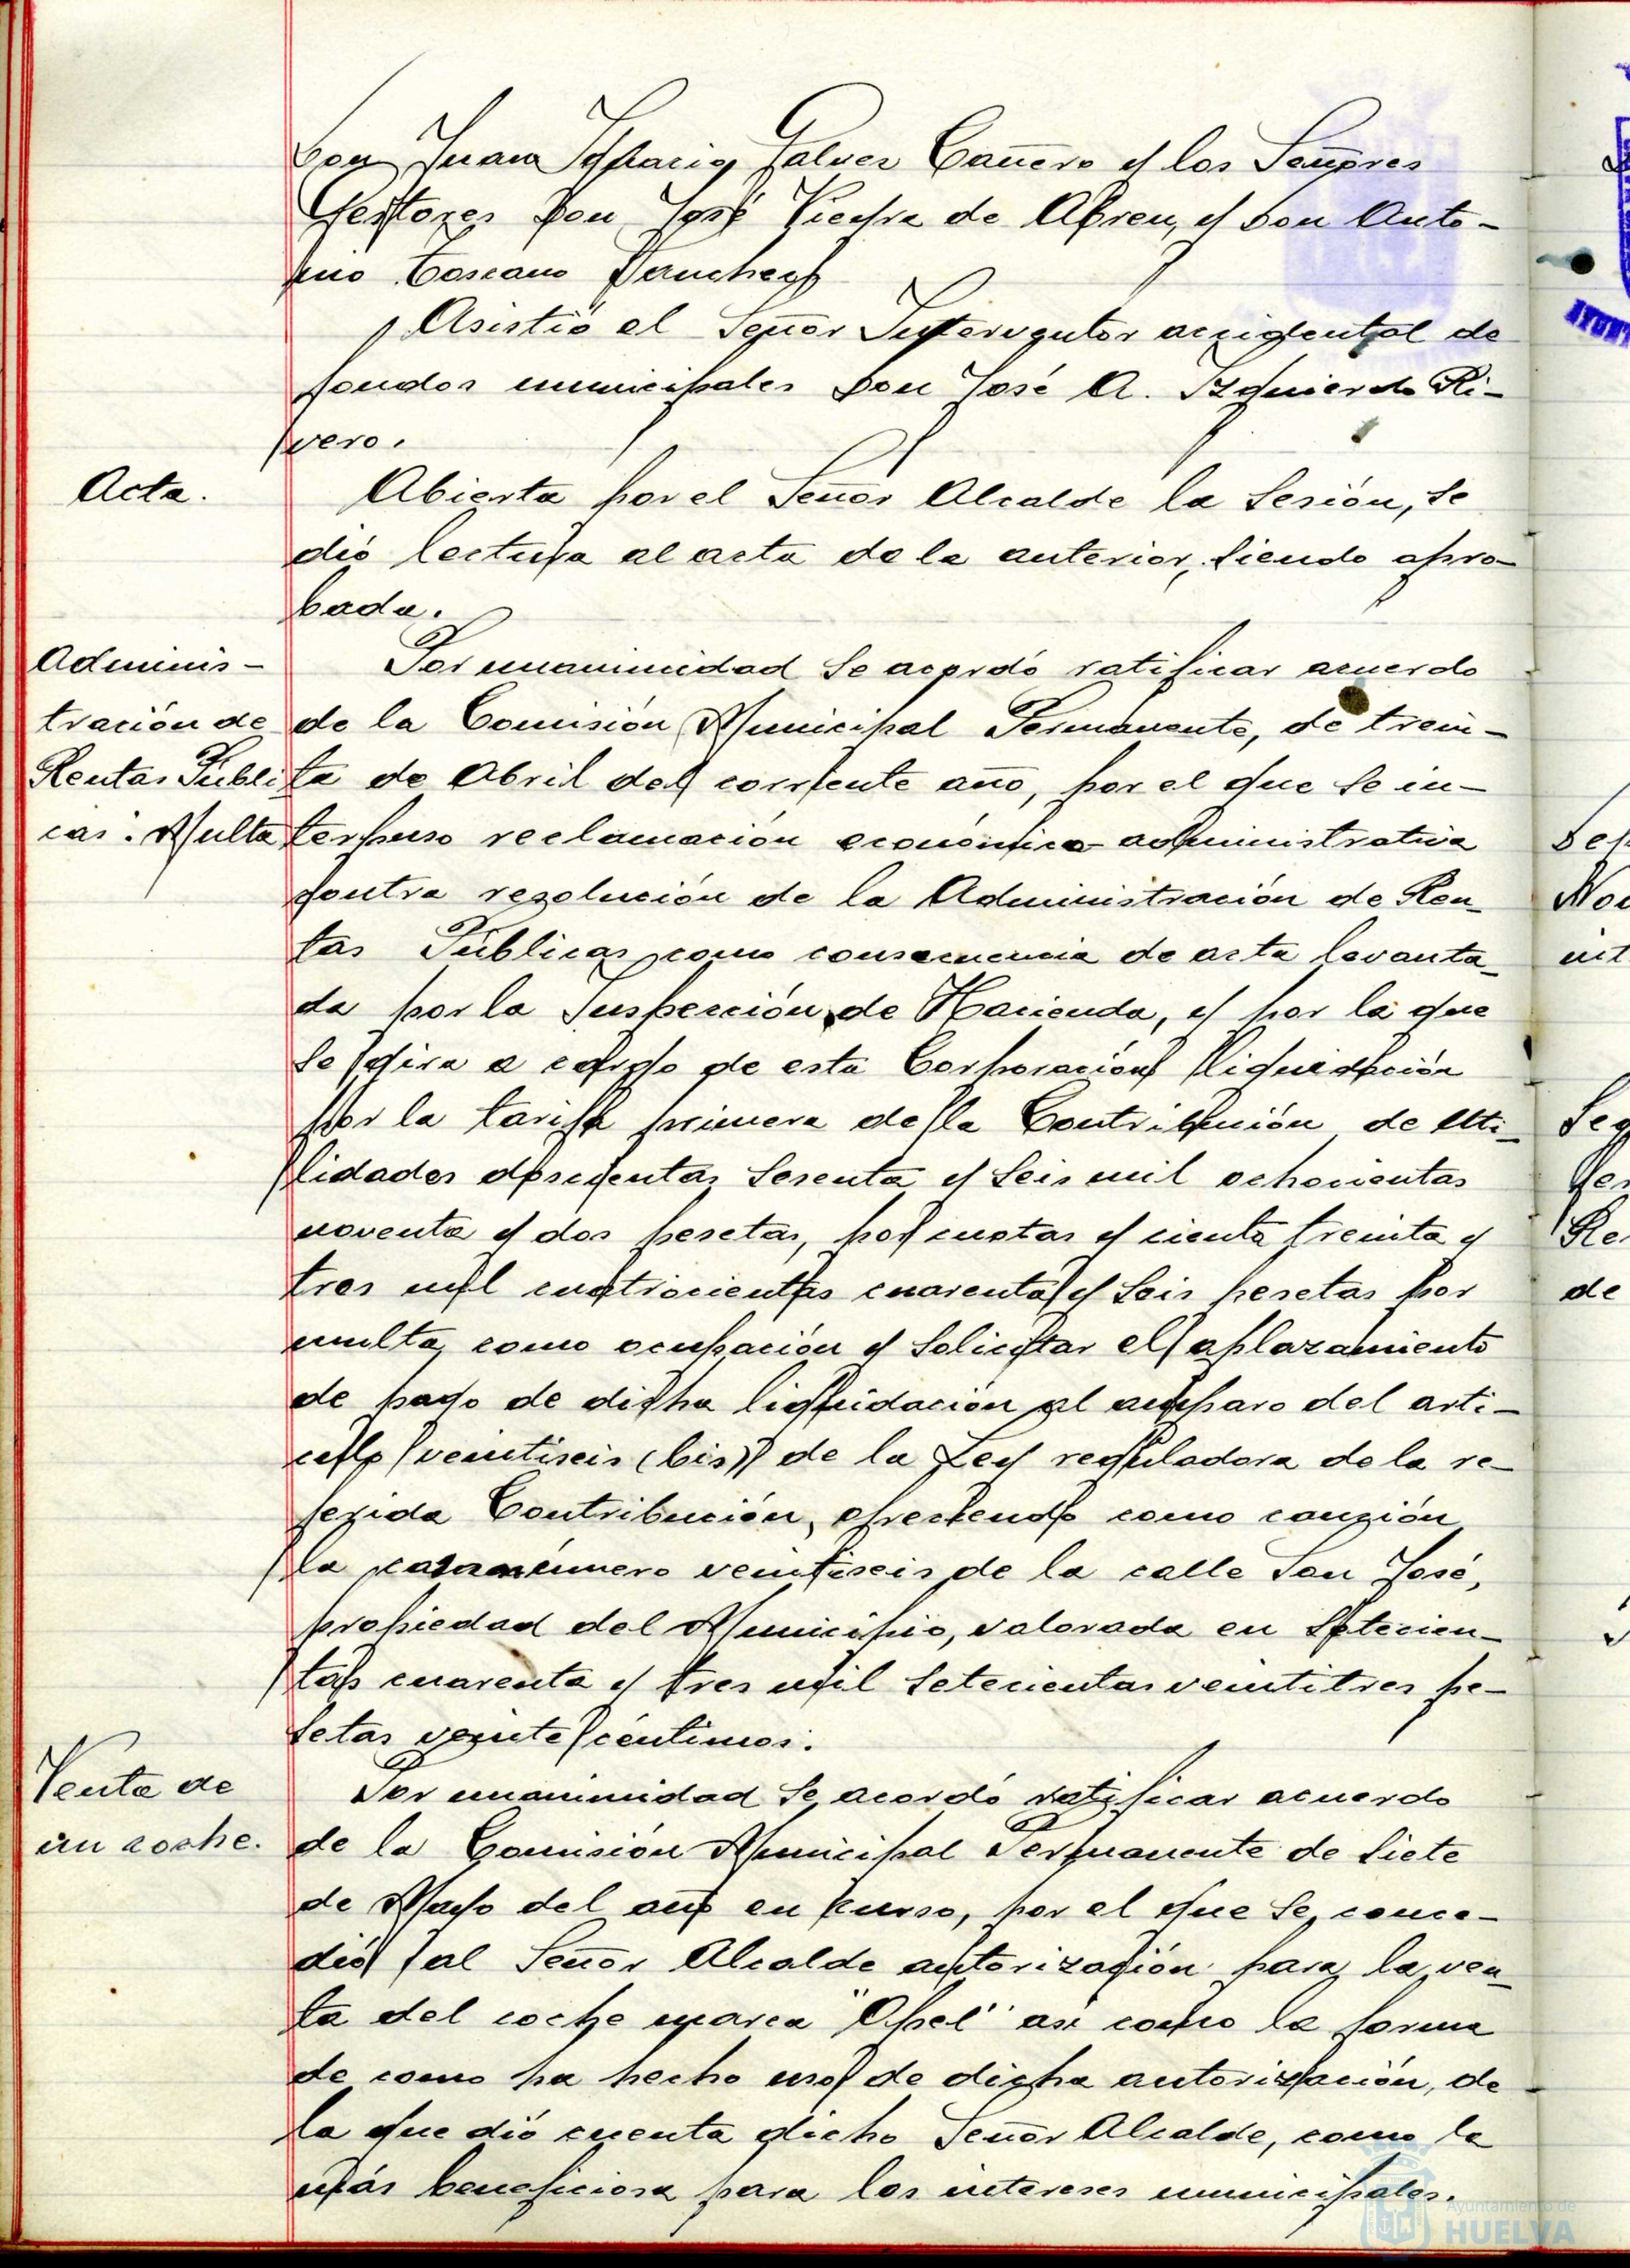 Don Juan Ignacio Galvez Cañero y los Señores
Gestores Don José Vieyra de Abreu, y Don Anto-
nio Toscano Sanchez
Asistió el Señor Interventor accidental de
fondos municipales Don José A. Izquierdo Ri-
vero.
Acta.
Abierta por el Señor Alcalde la Sesión, se
dió lectura al acta de la anterior, siendo apro-
bada.
Adminis-
tración de
Rentas Públi
cas. Multa
Por unanimidad se acordó ratificar acuerdo
de la Comisión Municipal Permanente, de trein-
ta de Abril del corriente año, por el que se in-
terpuso reclamación económico-administrativa
contra resolución de la Administración de Ren-
tas Públicas, como consecuencia de acta levanta-
da por la Inspección de Hacienda, y por la que
se gira a cargo de esta Corporación liquidación
por la tarifa primera de la Contribución de Uti-
lidades doscientas sesenta y seis mil ochocientas
noventa y dos pesetas, por cuotas y ciento treinta y
tres mil cuatrocientas cuarenta y seis pesetas por
multa, como ocupación y solicitar el aplazamiento
de pago de dicha liquidación al amparo del arti-
culo veintiseis (bis) de la Ley reguladora de la re-
ferida Contribución, ofreciendo como caución
la casa número veintiseis de la calle San José,
propiedad del Municipio, valorada en setecien-
tas cuarenta y tres mil setecientas veintitres pe-
setas veinte céntimos.
Venta de
un coche.
Por unanimidad se acordó ratificar acuerdo
de la Comisión Municipal Permanente de siete
de Mayo del año en curso, por el que se conce-
dió al Señor Alcalde autorización para la ven-
ta del coche marca "Opel" asi como la forma
de como ha hecho uso de dicha autorización, de
la que dió cuenta dicho Señor Alcalde, como la
más beneficiosa para los intereses municipales.
Ayuntamiento de
HUELVA